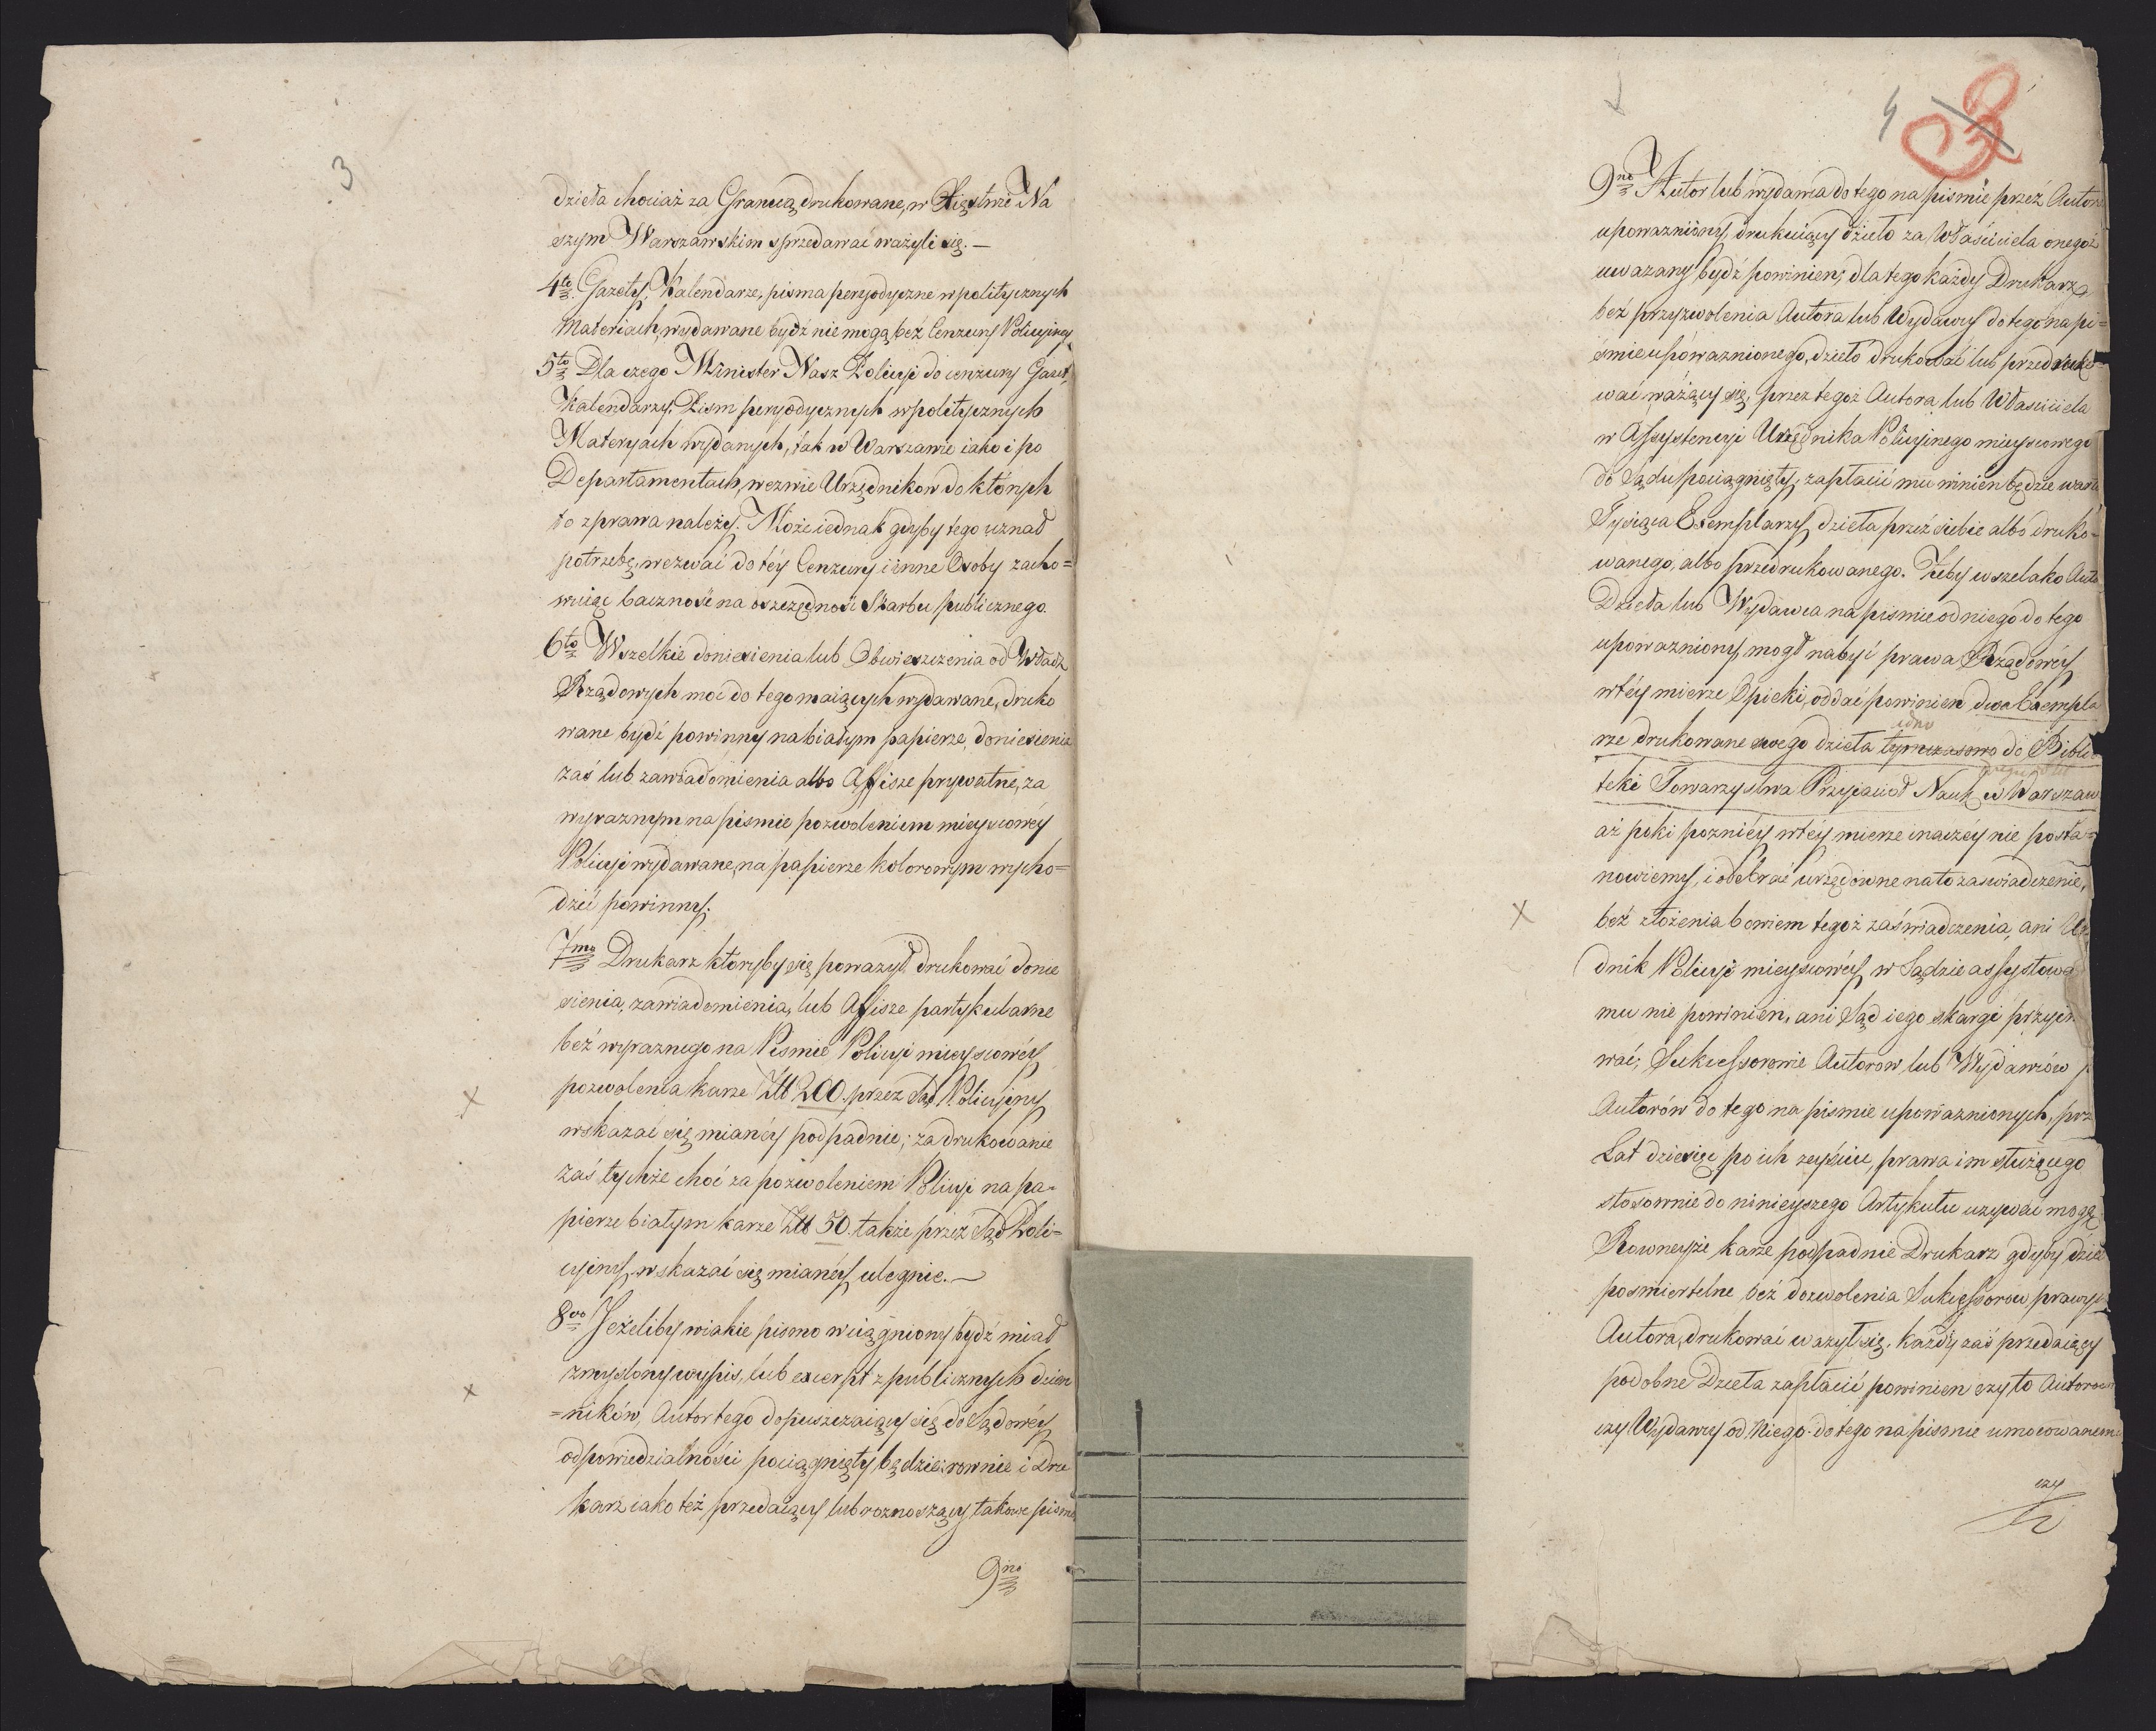 3
dzieła chociaż za Granicą drukowane, w Xięstwie Na
szym Warszawskim sprzedawać ważyli się. —
4to. Gazety, Kalendarze, pisma peryodyczne w politycznych
Materiach, wydawane bydź nie mogą bez Cenzury Policyiney
5to Dla czego Minister Nasz Policyi do cenzury Gazet,
Kalendarzy, Pism peryodycznych w politycznych
Materyach wydanych, tak w Warszawie iako i po
Departamentach, wezwie Urzędnikow do których
to zprawa należy. Może iednak gdyby tego uznał
potrzebę, wezwać do téy Cenzury i inne Osoby zacho=
wuiąc baczność na oszczędność Skarbu publicznego.
6to Wszelkie doniesienia lub Obwieszczenia od Władz
Rządowych moc do tego maiących wydawane, druko
wane bydź powinny na białym papierze, doniesienia
zaś lub zawiadomienia albo Affisze prywatne, za
wyraznym na pismie pozwoleniem mieyscowéy
Policyi wydawane, na papierze kolorowym wycho=
dzić powinny.
7mo Drukarz któryby się powazył drukować donie
sienia, zawiadomienia, lub Affisze partykularne
beź wyraznego na Pismie Policyi mieyscowéy
pozwolenia karze Złł 200. przez Sąd Policyiny
wskazać się mianéy podpadnie; za drukowanie
zaś tychże choć za pozwoleniem Policyi na pa-
pierze białym karze Złł 50. także przez Sąd Poli=
cyiny wskazać się mianéy ulegnie. —
8vo Jeżeliby w iakie pismo wciągniony bydź miał
zmyslony wypis, lub excerpt z publicznych dzien
=ników, Autor tego dopuszczaiący się do Sądowéy
odpowiedzialności pociągnięty będzie: rownie i Dru
karz iako też przedaiący lub roznoszący takowe pismo
9no
4
9no Autor lub wydawca do tego na pismie przez Autora
upowazniony, drukuiący dzieło za Właściciela onegoż
uwazany bydź powinien; dla tego każdy Drukarz
beź przyzwolenia Autora lub Wydawcy do tego na pi=
śmie upowaznionego, dzieło drukować lub przedruko=
wać ważący się, przez tegoż Autora lub Właściciela
w Assystencyi Urzędnika Policyinego mieyscowego
do Sądu pociągnięty, zapłacić mu winien będzie wart
Tysiąca Exemplarzy dzieła przez siebie albo druko-
wanego, albo przedrukowanego. Żeby wszelako Auto
Dzieła lub Wydawca na pismie od niego do tego
upowazniony, mogł nabyć prawa Rządowéy
w téy mierze Opieki, oddać powinien dwa Exempla
rze drukowane swego dzieła tymczasowo do Biblio
teki Towarzystwa Przyiaciół Nauk w Warszaw
aż poki poznićy w téy mierze inaczéy nie posta=
nowiemy, i odebrać urzędowne na to zaswiadczenie,
beź złożenia bowiem tegoż zaświadczenia, ani Urzę
dnik Policyi mieyscowéy w Sądzie assystować
mu nie powinien, ani Sąd iego skargi przyim
wać; Sukcessorowie Autorow lub Wydawców
Autorów do tego na pismie upowaznionych, prz
Lat dziesięc po ich zeyściu, prawa im służącego
stosownie do ninieyszego Artykułu używać mogą.
Rowneyże karze podpadnie Drukarz gdyby dzieł
posmiertelne beź dozwolenia Sukcessorow prawych
Autora, drukować ważył się. Każdy zaś przedaiący
podobne Dzieła zapłacić powinien czy to Autorow
czy Wydawcy od Niego do tego na pismie umocowanemu
czy